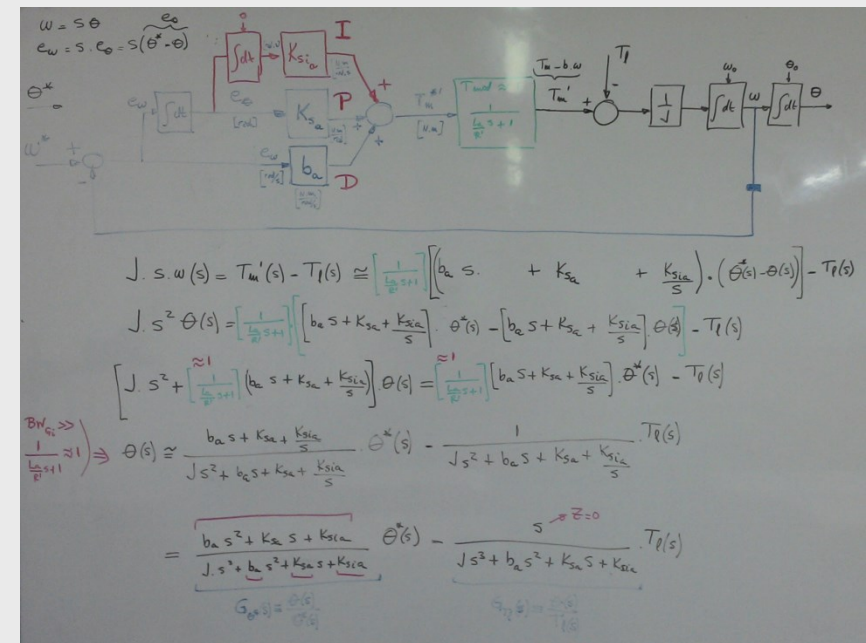 ω = s θ
e_ω = s · e_θ = s(θ* - θ)
e_θ
0
∫dt
K_sia
I
θ*
ω*
+
-
e_ω
∫dt
e_θ
[rad]
K_sa
P
e_ω
[rad/s]
b_a
D
+
+
+
T_m*'
[N.m]
1 / (L_a/R' s+1)
T_m - b.ω
T_m'
+
T_l
-
1/J
ω_0
∫dt
ω
θ_0
∫dt
θ
J · s · ω(s) = T_m'(s) - T_l(s) ≅ [1 / (L_a/R' s+1)] [(b_a s. + K_sa + K_sia/s) · (θ*(s) - θ(s))] - T_l(s)
J · s² θ(s) = [1 / (L_a/R' s+1)] · [[b_a s + K_sa + K_sia/s] · θ*(s) - [b_a s + K_sa + K_sia/s] · θ(s)] - T_l(s)
≈1 ≈1
[J · s² + [1 / (L_a/R' s+1)] (b_a s + K_sa + K_sia/s)] · θ(s) = [1 / (L_a/R' s+1)] [b_a s + K_sa + K_sia/s] · θ*(s) - T_l(s)
BW_Gi >>
1 / (L_a/R' s+1) ≈ 1) ⇒ θ(s) ≅ (b_a s + K_sa + K_sia/s) / (Js² + b_a s + K_sa + K_sia/s) · θ*(s) - 1 / (Js² + b_a s + K_sa + K_sia/s) · T_l(s)
= (b_a s² + K_sa s + K_sia) / (J · s³ + b_a s² + K_sa s + K_sia) θ*(s) - s / (Js³ + b_a s² + K_sa s + K_sia) · T_l(s)
z=0
G_θ*(s) = θ(s)/θ*(s)